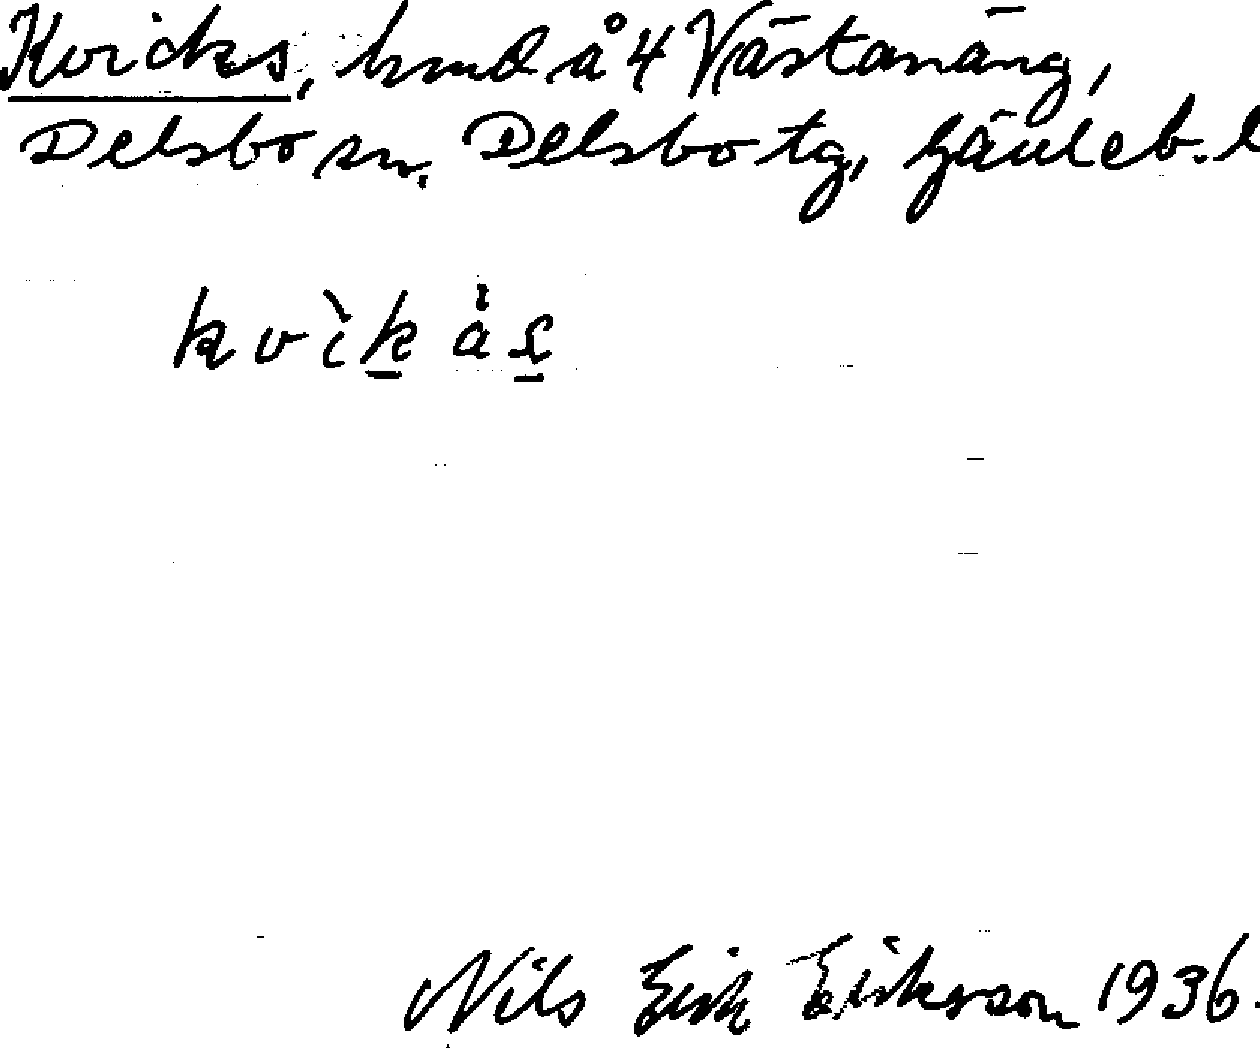 Kvicks, hmd å 4 Västanäng,
Delsbo sn. Delsbo tg, Gävleb. l
kvìkås
Nils Erik Eriksson 1936.